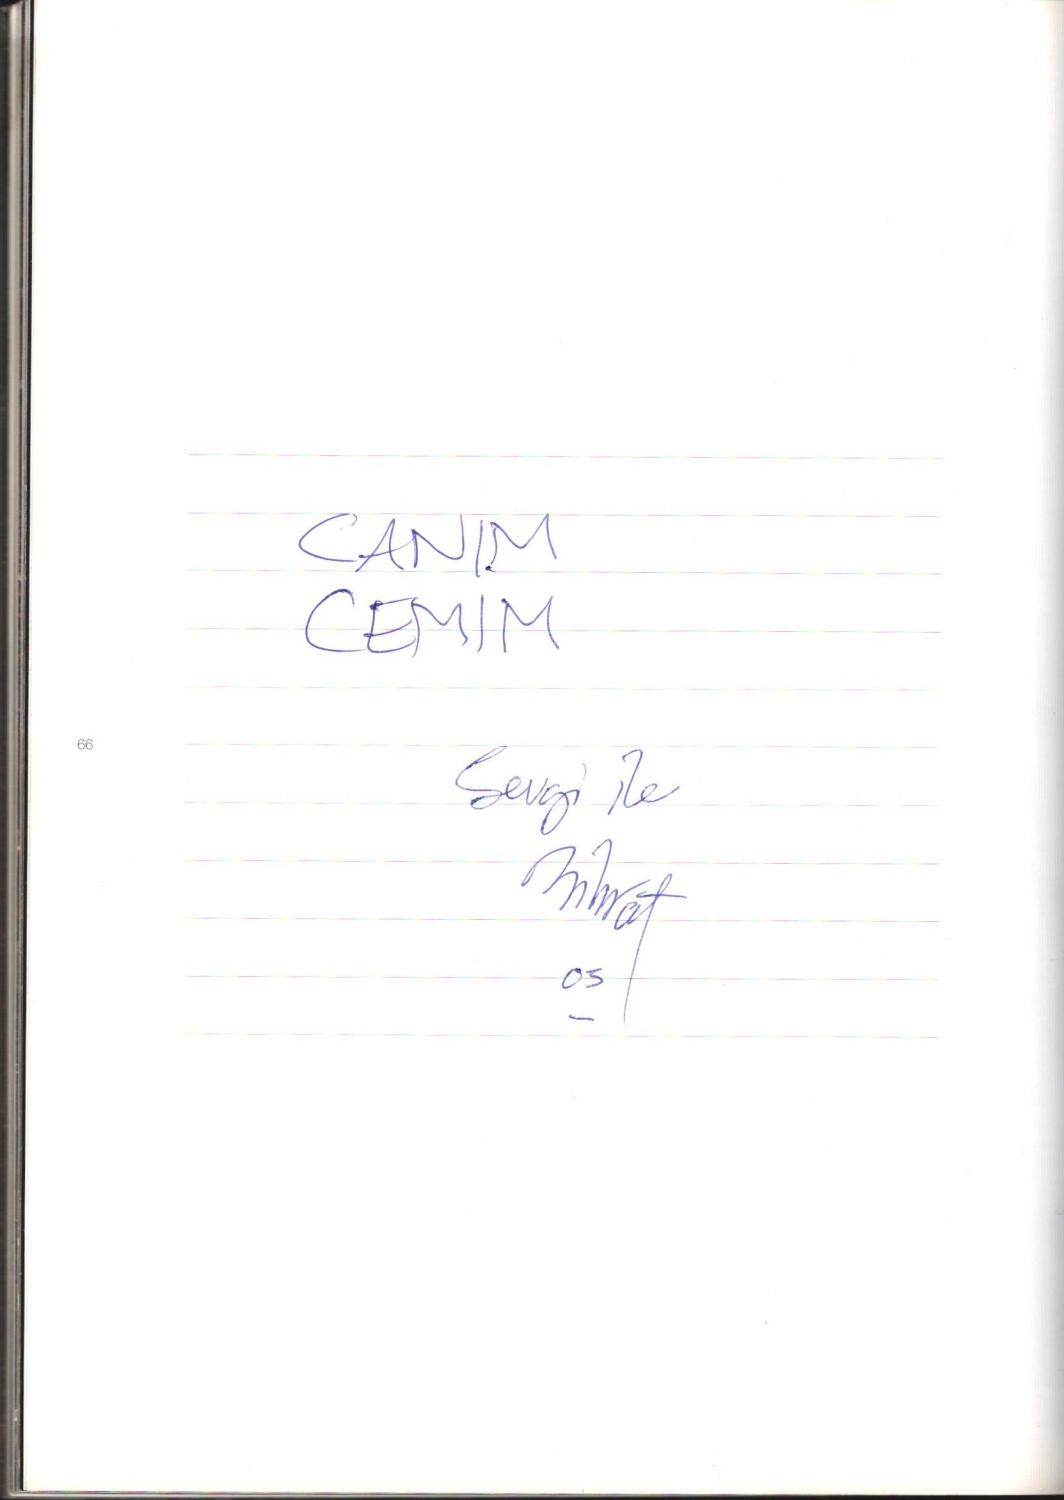 CANIM
CEMIM
66
Sevgi ile
05